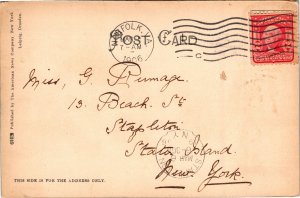 NORFOLK, VA.
7-AM
1906
POST CARD
Miss, G. Rumage.
13. Beach. St
Stapleton
Staten Island.
New. York.
Published by The American News Company New York.
Leipzig, Dresden.
THIS SIDE IS FOR THE ADDRESS ONLY.